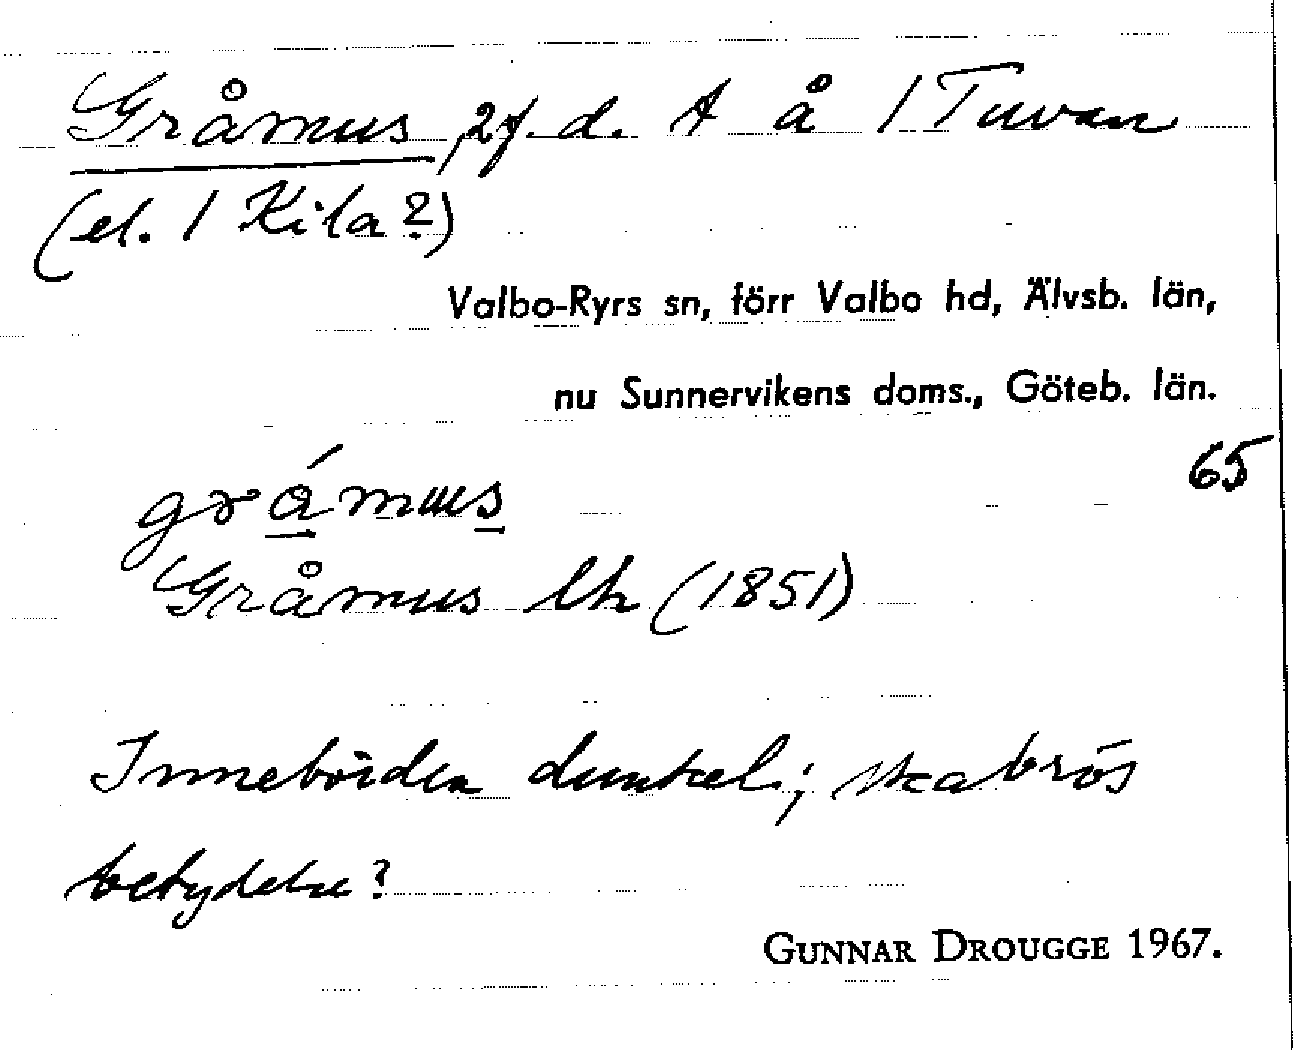 Gråmus, 2 f. d. t å / Tuvan
(el. / Kila?)
Valbo-Ryrs sn, förr Valbo hd, Älvsb. län,
nu Sunnervikens doms., Göteb. län.
65
grámus
Gråmus lh (1851)
Innebörden dunkel; skabrös
betydelse?
GUNNAR DROUGGE 1967.